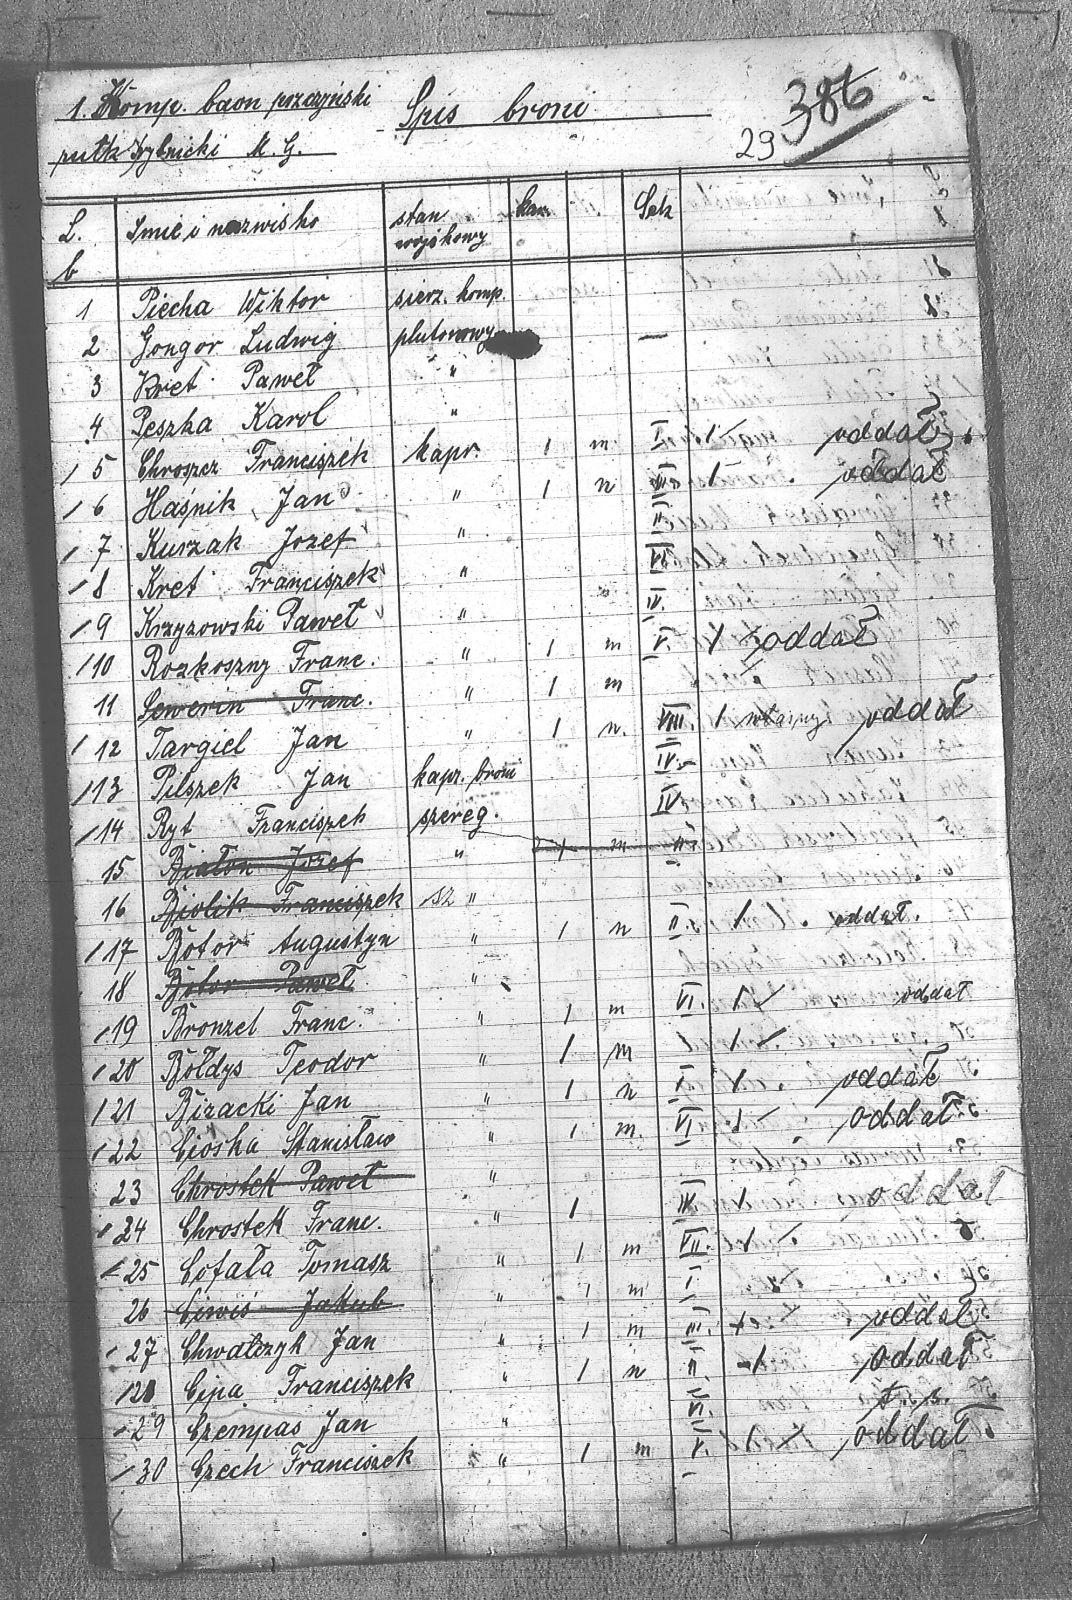 1. Komp. baon pszczyński
Spis broni
29 386
pułk Rybnicki M. G.
L. b Imię i nazwisko stan wojskowy kar. Sek
1 Piecha Wiktor sierz. komp.
2 Gongor Ludwig plutonowy —
3 Kret Paweł "
4 Peszka Karol "
/ 5 Chroszcz Franciszek kapr. 1 m I 1 oddał
/ 6 Haśnik Jan " 1 n III 1 oddał
/ 7 Kurzak Jozef " II
/ 8 Kret Franciszek " VI
/ 9 Krzyzowski Paweł " IV.
/ 10 Rozkoszny Franc. " 1 m V. 1 oddał
11 Sewerin Franc. " 1 m
/ 12 Targiel Jan " 1 n. VIII 1 własny oddał
/ 13 Pilszek Jan kapr. broni IV
/ 14 Ryt Franciszek szereg. IV
15 Białon Jozef " 1 m II
16 Biolik Franciszek sz "
/ 17 Botor Augustyn " 1 n II. 1 oddał.
18 Botor Paweł "
/ 19 Bronzel Franc. " 1 m VI. 1 oddał
/ 20 Bołdys Teodor " 1 m I 1
/ 21 Bizacki Jan " 1 n I 1 oddał
/ 22 Cioska Stanisław " 1 m. VI 1 oddał
23 Chrostek Paweł "
/ 24 Chrostek Franc. " 1 IV 1 oddał
/ 25 Cofała Tomasz " 1 m VII. 1
26 Ciwiś Jakub " 1 m I
/ 27 Chwałczyk Jan " 1 m III. oddał
/ 28 Cipa Franciszek " 1 n II 1 oddał
/ 29 Czempas Jan " VI
/ 30 Czech Franciszek " 1 m V. oddał